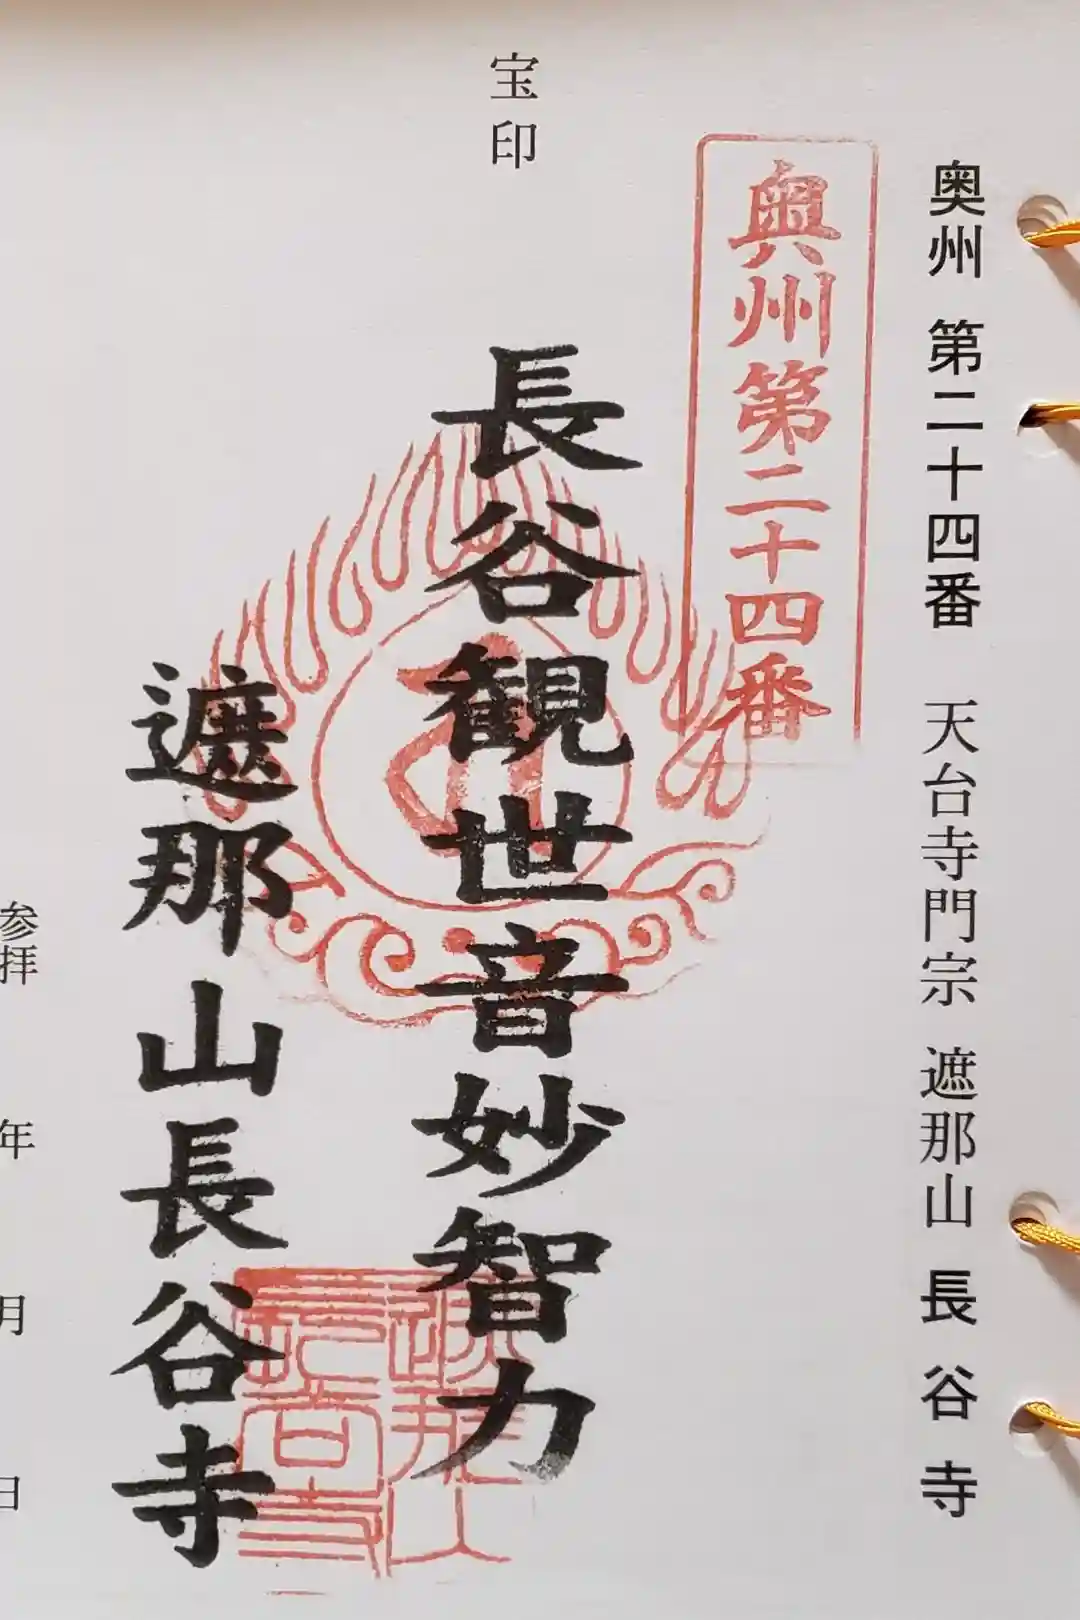 奥州 第二十四番 天台寺門宗 遮那山 長谷寺
奥州第二十四番
宝印
長谷観世音妙智力
遮那山長谷寺
参拝 年 月 日